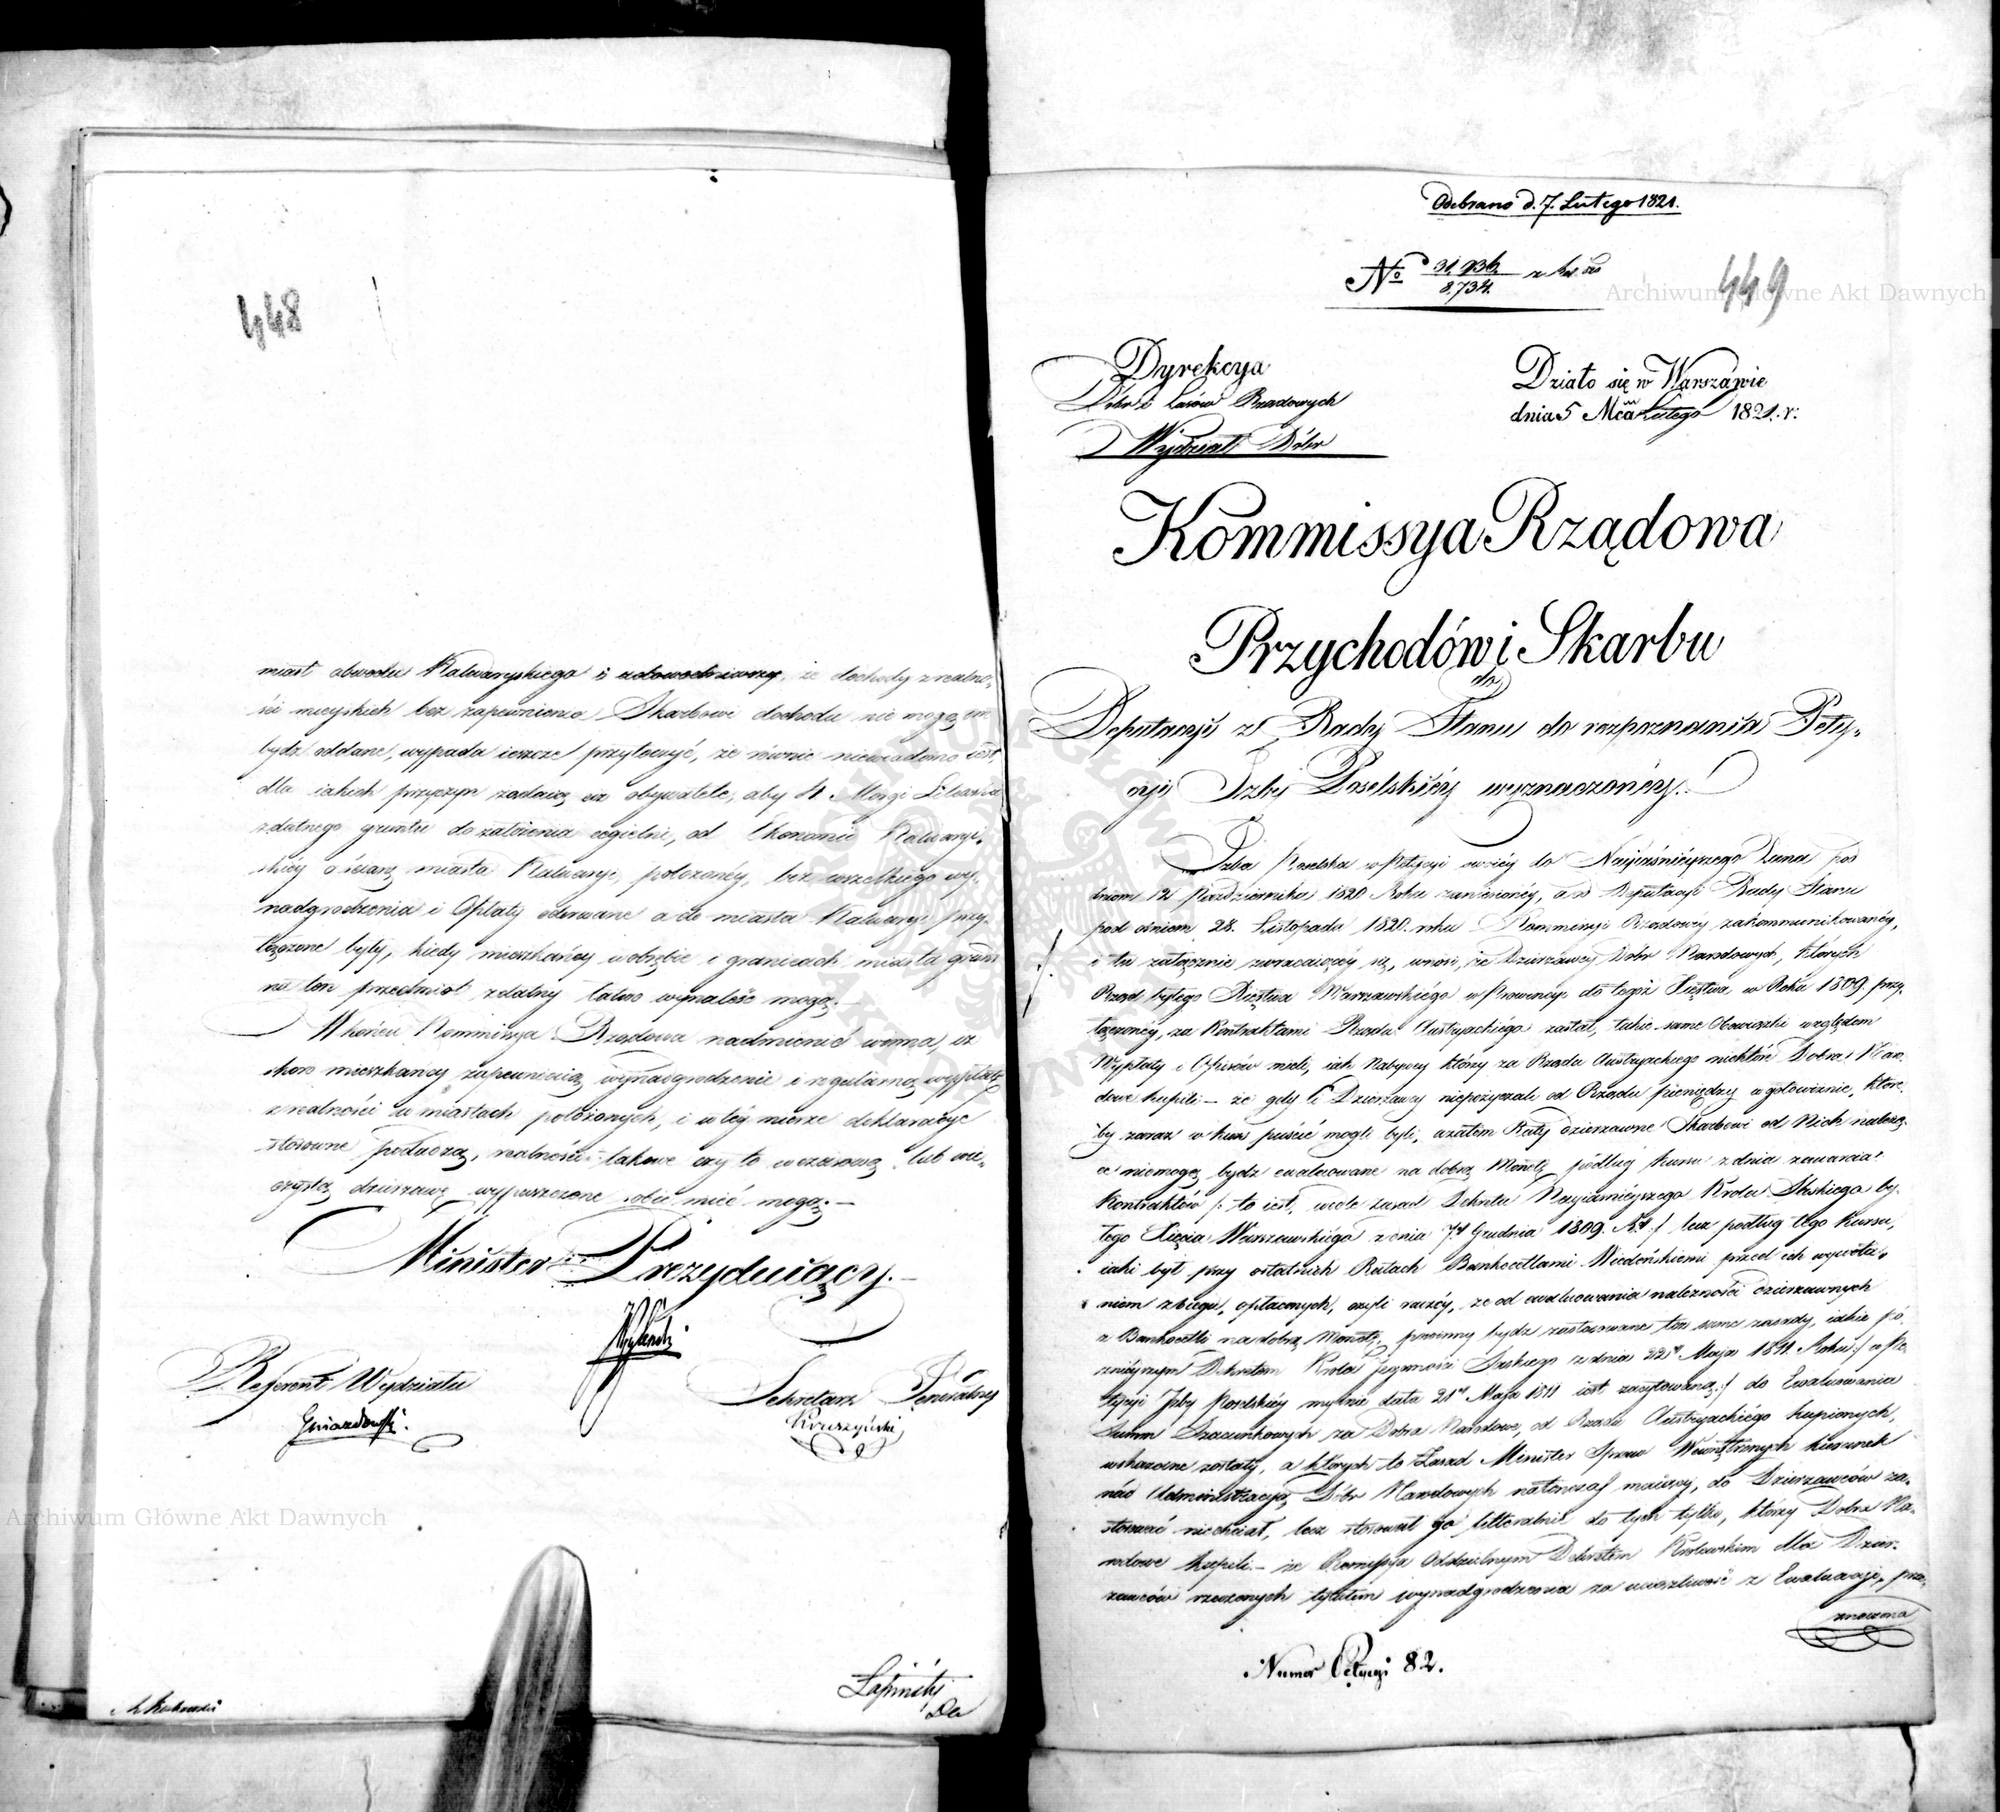 448
miast obwodu Kalwaryskiego i udowodniwszy, że dochody z realno-
ści mieyskich bez zapewnienia Skarbowi dochodu nie mogą im
bydź oddane, wypada ieszcze przytoczyć, że równie niewiadomo iest,
dla iakich przyczyn żądaią ciż obywatele, aby 4 Morgi
zdatnego gruntu do założenia cegielni, od Ekonomii Kalwaryi-
skiéy o ścianę miasta Kalwaryi, położonéy, bez wszelkiego wy-
nadgrodzenia i Opłaty oderwane a do miasta Kalwaryi przy-
łączone były, kiedy mieszkańcy w obrębie i granicach miasta grunt
na ten przedmiot zdatny łatwo wynaleść mogą.—
W końcu Kommissya Rządowa nadmienić winna, iż
skoro mieszkańcy zapewnienią wynadgrodzenie i regularną wypłatę
z realności w miastach położonych, i w téy mierze deklaracye
stosowne podadzą, realności takowe czy to w czasową lub wie-
czystą dzierżawę wypuszczone sobie mieć mogą.—
Minister Prezyduiący.—
Referent Wydziału
Sekretarz Jeneralny
Gwiazdowski.
Kruszyński
Łapiński
Archiwum Główne Akt Dawnych
Odebrano d. 7. Lutego 1821.
No 31,936
8,734.
449
Archiwum Główne Akt Dawnych
Dyrekcya
Dóbr i Lasów Rządowych
Wydział Dóbr
Działo się w Warszawie
dnia 5 Mca Lutego 1821. r:
Kommissya Rządowa
Przychodów i Skarbu
do
Deputacyi z Rady Stanu do rozpoznania Pety-
cyi Izby Poselskiéy wyznaczonéy.
Izba Poselska w Petycyi swoiéy do Nayiaśnieyszego Pana pod
dniem 12 Października 1820 Roku zaniesionéy, a z Deputacyi Rady Stanu
pod dniem 28. Listopada 1820. roku Kommissyi Rządowey zakommunikowanéy,
i tu załącznie zwracaiącéy się, wnosi, że Dzierżawcy Dóbr Narodowych, których
Rząd byłego Xięstwa Warszawskiego w Prowincyi do tegoż Xięstwa w Roku 1809. przy-
łączonéy, za Kontraktami Rządu Austryackiego zastał, takie same Obowiązki względem
Wypłaty i Opisów mieli, iak Nabywcy którzy za Rządu Austryackiego niektóre Dobra Naro-
dowe kupili — że gdy Ci Dzierżawcy niepożyczali od Rządu pieniędzy w gotowiznie, które-
by zaraz w kurs puścić mogli byli, a zatem Raty dzierżawne Skarbowi od Nich należą-
ce niemogą bydź ewaluowane na dobrą Monetę podług kursu z dnia zawarcia
Kontraktów /: to iest, wedle zasad Dekretu Nayiaśnieyszego Króla Saskiego by-
łego Xięcia Warszawskiego z dnia 7go Grudnia 1809. R. :/ lecz podług tego kursu,
iaki był przy ostatnich Ratach Bankocetlami Wiedeńskiemi przed ich wywoła-
niem z biegu, opłaconych, czyli raczéy, że od ewaluowania należności dzierżawnych
z Bankocetli na dobrą Monetę, powinny bydź zastosowane też same zasady, iakie pó-
źnieyszym Dekretem Króla Jegomości Saskiego z dnia 22go Maja 1811. Roku /: w Pe-
tycyi Izby Poselskiéy mylnie data 21go Maja 1811 iest zacytowaną :/ do Ewaluowania
Summ Szacunkowych za Dobra Narodowe, od Rządu Austryackiégo kupionych,
wskazane zostały, a których to Zasad Minister Spraw Wewnętrznych kierunek
nád Administracyą Dóbr Narodowych natenczas maiący, do Dzierżawców za-
stosować niechciał, lecz stosował go litteralnie do tych tylko, którzy Dobra Na-
rodowe kupili — że Kommissya Oddzielnym Dekretem Królewskim dla Dzier-
żawców rzeczonych tytułem wynadgrodzenia za uciążliwość z Ewaluacyi, prze-
znaczona
Numer Petycyi 82.